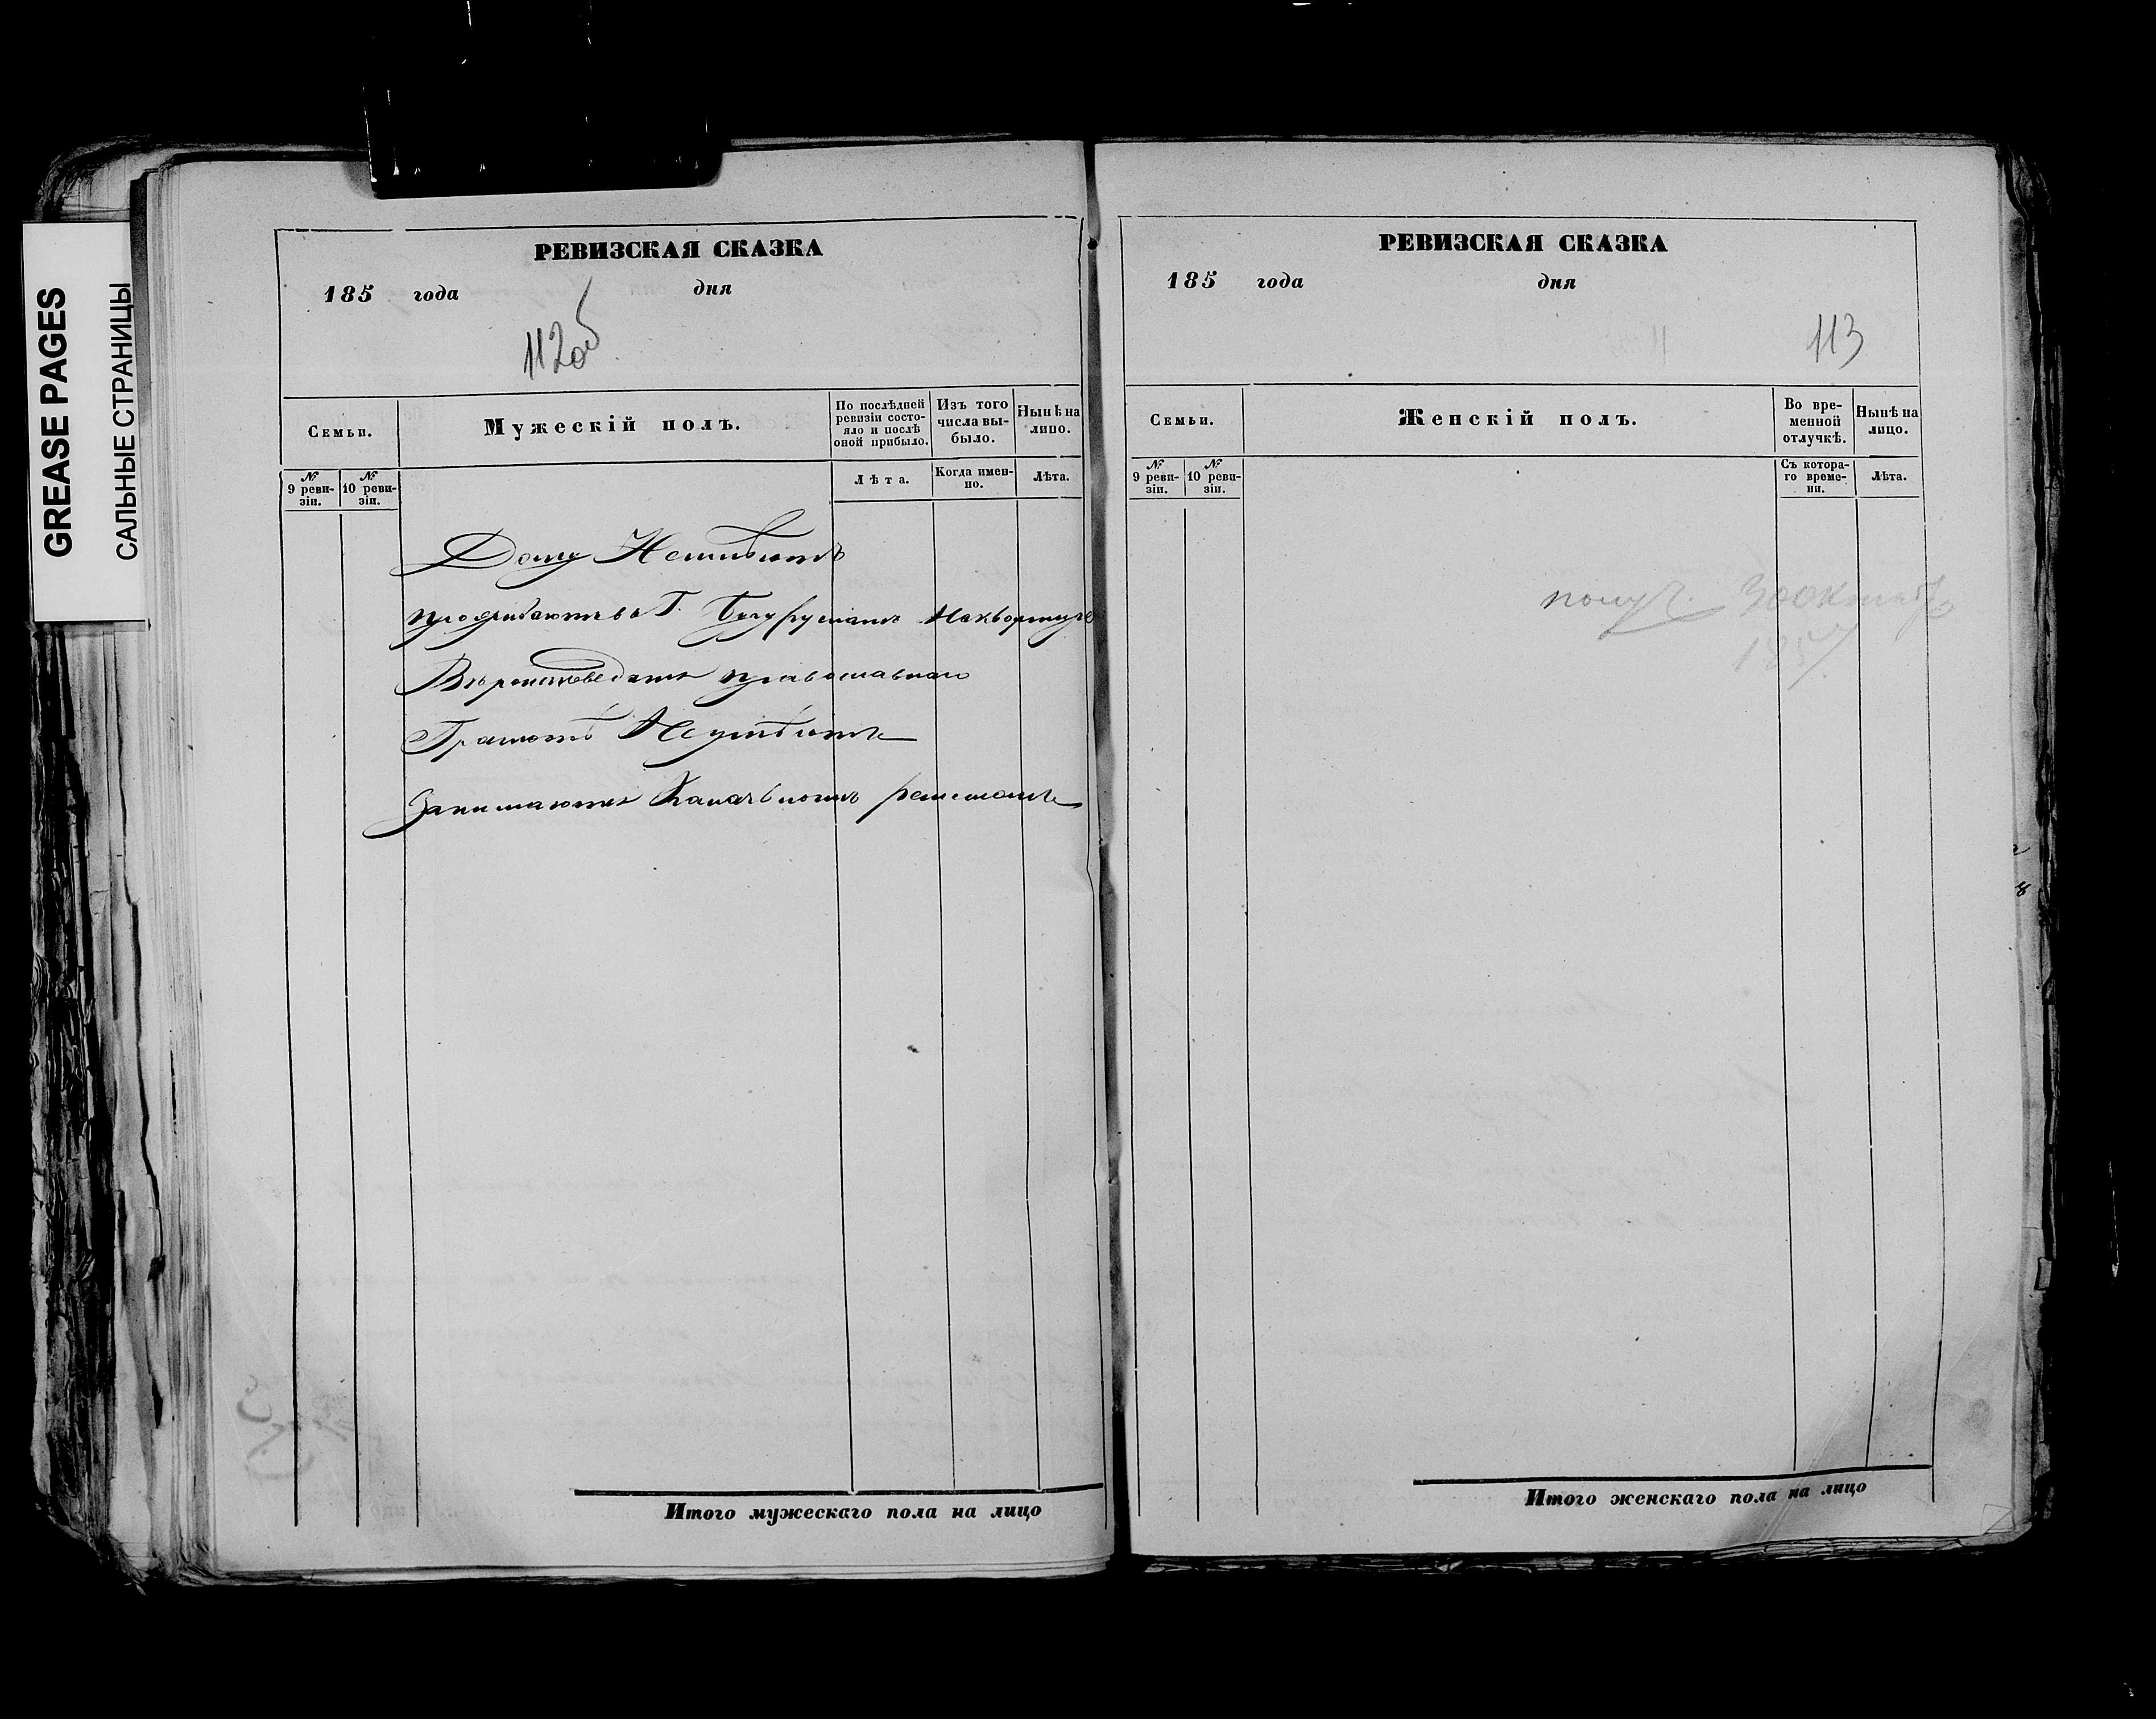 GREASE PAGES
САЛЬНЫЕ СТРАНИЦЫ
РЕВИЗСКАЯ СКАЗКА
185 года дня
112об
Семьи.
Мужескій полъ.
По послѣдней ревизіи состояло и послѣ оной прибыло.
Изъ того числа выбыло.
Нынѣ на лицо.
№ 9 ревизіи.
№ 10 ревизіи.
Лѣта.
Когда именно.
Лѣта.
Дому Неимѣютъ
проживаютъ въ Г. Бугурусланѣ Наквартире
Вѣроисповеданія православнаго
Грамотѣ Неумѣютъ
Занимаются
РЕВИЗСКАЯ СКАЗКА
185 года дня
113
Семьи.
Женскій полъ.
Во временной отлучкѣ.
Нынѣ на лицо.
№ 9 ревизіи.
№ 10 ревизіи.
Съ котораго времени.
Лѣта.
получ. 30 октября
185
Итого мужескаго пола на лицо
Итого женскаго пола на лицо